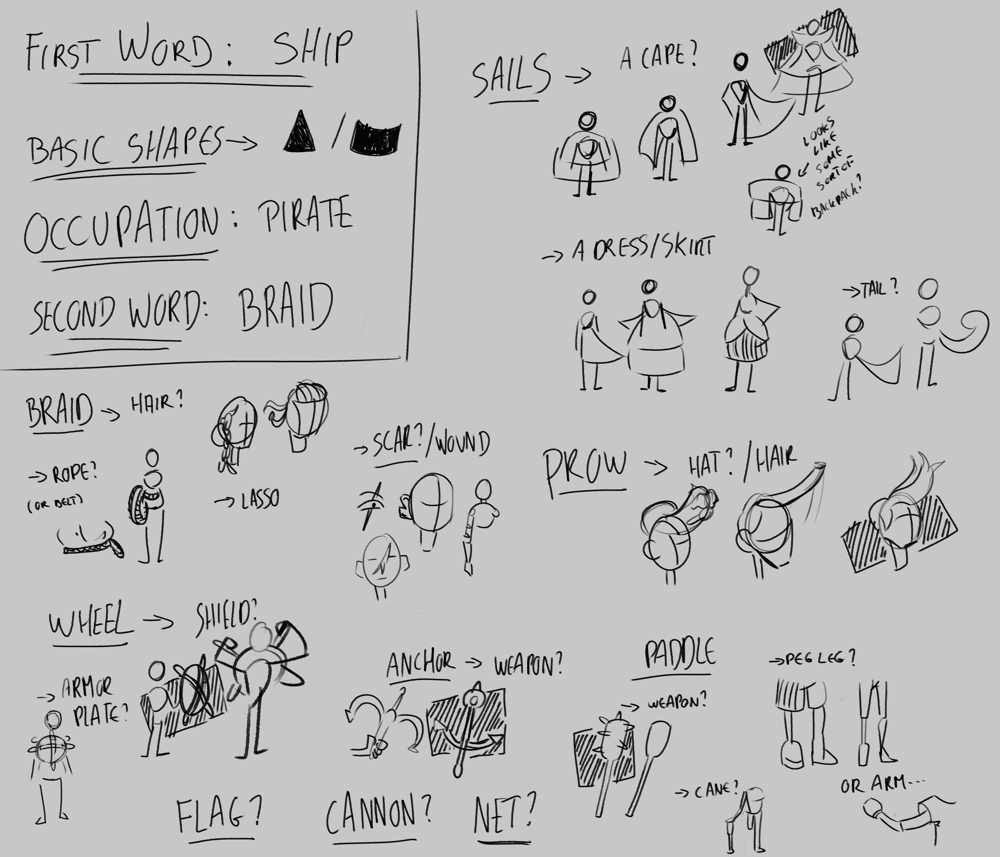 FIRST WORD: SHIP
BASIC SHAPES→ /
OCCUPATION: PIRATE
SECOND WORD: BRAID
SAILS → A CAPE?
LOOKS
LIKE
SOME
SORT OF
BACKPACK?
→ A DRESS/SKIRT
→TAIL?
BRAID → HAIR?
→ ROPE?
(OR BELT)
→ LASSO
→ SCAR?/WOUND
PROW → HAT?/HAIR
WHEEL → SHIELD?
→ ARMOR
PLATE?
ANCHOR → WEAPON?
PADDLE
→ WEAPON?
→PEG LEG?
→ CANE?
OR ARM...
FLAG? CANNON? NET?